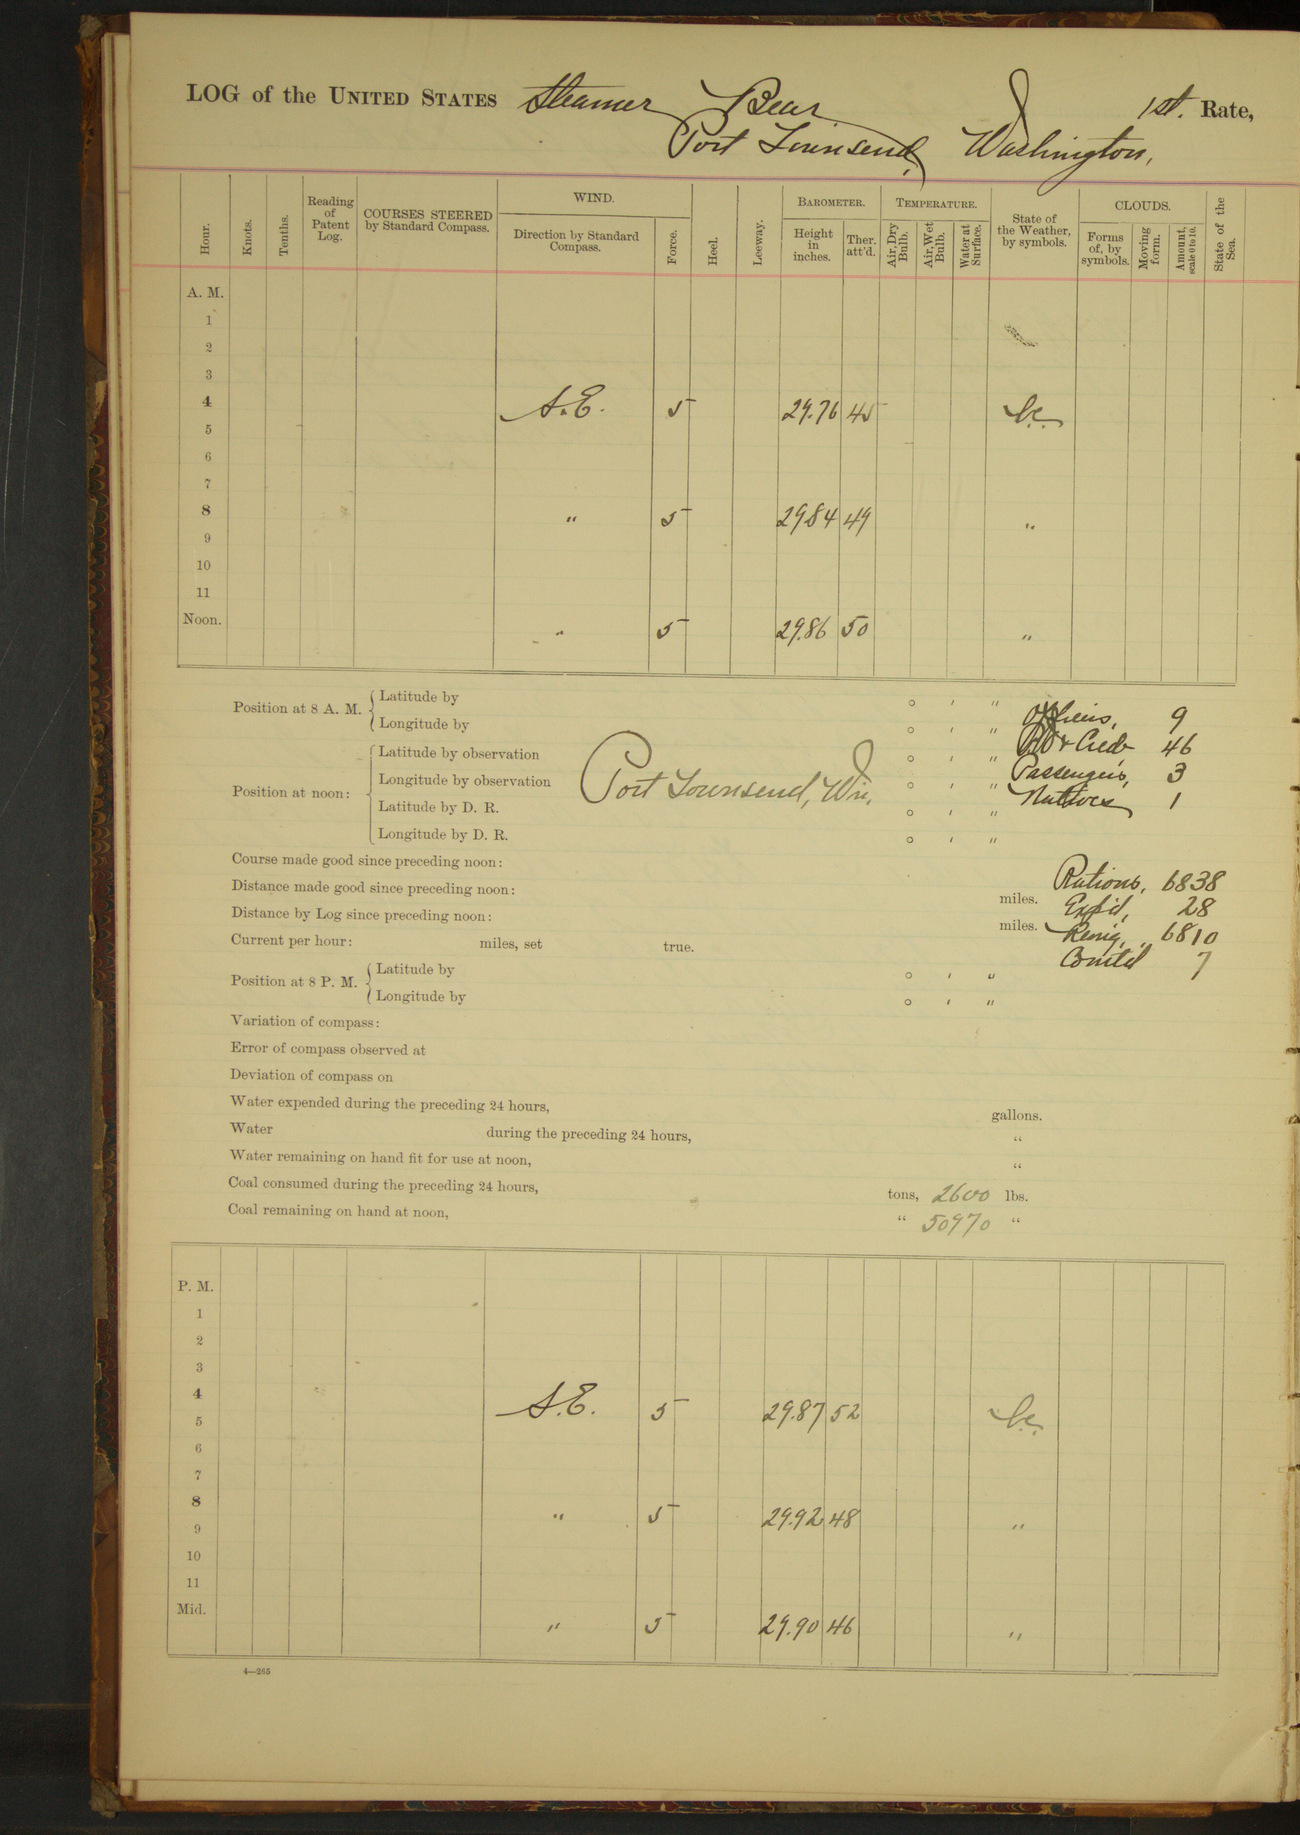 LOG of the UNITED STATES Steamer Bear 1st. Rate,
Port Townsend, Washington,
Hour. Knots. Tenths. Reading of Patent Log. COURSES STEERED by Standard Compass. WIND. Direction by Standard Compass. Force. Heel. Leeway. BAROMETER. Height in inches. Ther. att'd. TEMPERATURE. Air, Dry Bulb. Air, Wet Bulb. Water at Surface. State of the Weather, by symbols. CLOUDS. Forms of, by symbols. Moving form. Amount, scale 0 to 10. State of the Sea.
A. M.
1
2
3
4 S.E. 5 29.76 45 b.c.
5
6
7
8 " 5 29.84 49 "
9
10
11
Noon. " 5 29.86 50 "
Position at 8 A. M. Latitude by ° ' "
Longitude by ° ' " Officers, 9
Position at noon: Latitude by observation ° ' " & Crew 46
Longitude by observation Port Townsend, Wn. ° ' " Passengers, 3
Latitude by D. R. ° ' " Natives 1
Longitude by D. R. ° ' "
Course made good since preceding noon:
Distance made good since preceding noon: miles. Rations, 6838
Distance by Log since preceding noon: miles. Exp'd, 28
Current per hour: miles, set true. Remg. 6810
Position at 8 P. M. Latitude by ° ' " Comtd 7
Longitude by ° ' "
Variation of compass:
Error of compass observed at
Deviation of compass on
Water expended during the preceding 24 hours, gallons.
Water during the preceding 24 hours, "
Water remaining on hand fit for use at noon, "
Coal consumed during the preceding 24 hours, tons, 2600 lbs.
Coal remaining on hand at noon, " 50970 "
P. M.
1
2
3
4 S.E. 5 29.87 52 b.c.
5
6
7
8 " 5 29.92 48 "
9
10
11
Mid. " 5 29.90 46 "
4—265